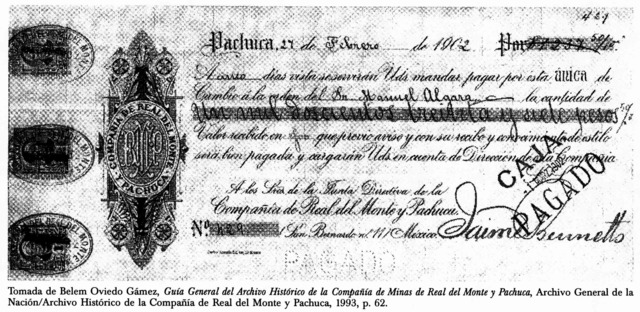 429
Pachuca, 27 de Febrero de 1902 Por
A cinco días vista se servirán Uds mandar pagar por esta única de
Cambio á la orden del Sr. Manuel Algara la cantidad de
Un mil doscientos treinta y siete pesos 59/
Valor recibido en que previo aviso y con su recibo y conocimiento de estilo
será bien pagada y cargarán Uds en cuenta de Dirección de esta Compañía
A los Sres de la Junta Directiva de la
Compañía de Real del Monte y Pachuca.
Nº San Bernardo nº 11 / México.
COMPAÑÍA DE REAL DEL MONTE
PACHUCA
CAJA
PAGADO
Jaime Bennetts
PAGADO
Tomada de Belem Oviedo Gámez, Guía General del Archivo Histórico de la Compañía de Minas de Real del Monte y Pachuca, Archivo General de la
Nación/Archivo Histórico de la Compañía de Real del Monte y Pachuca, 1993, p. 62.